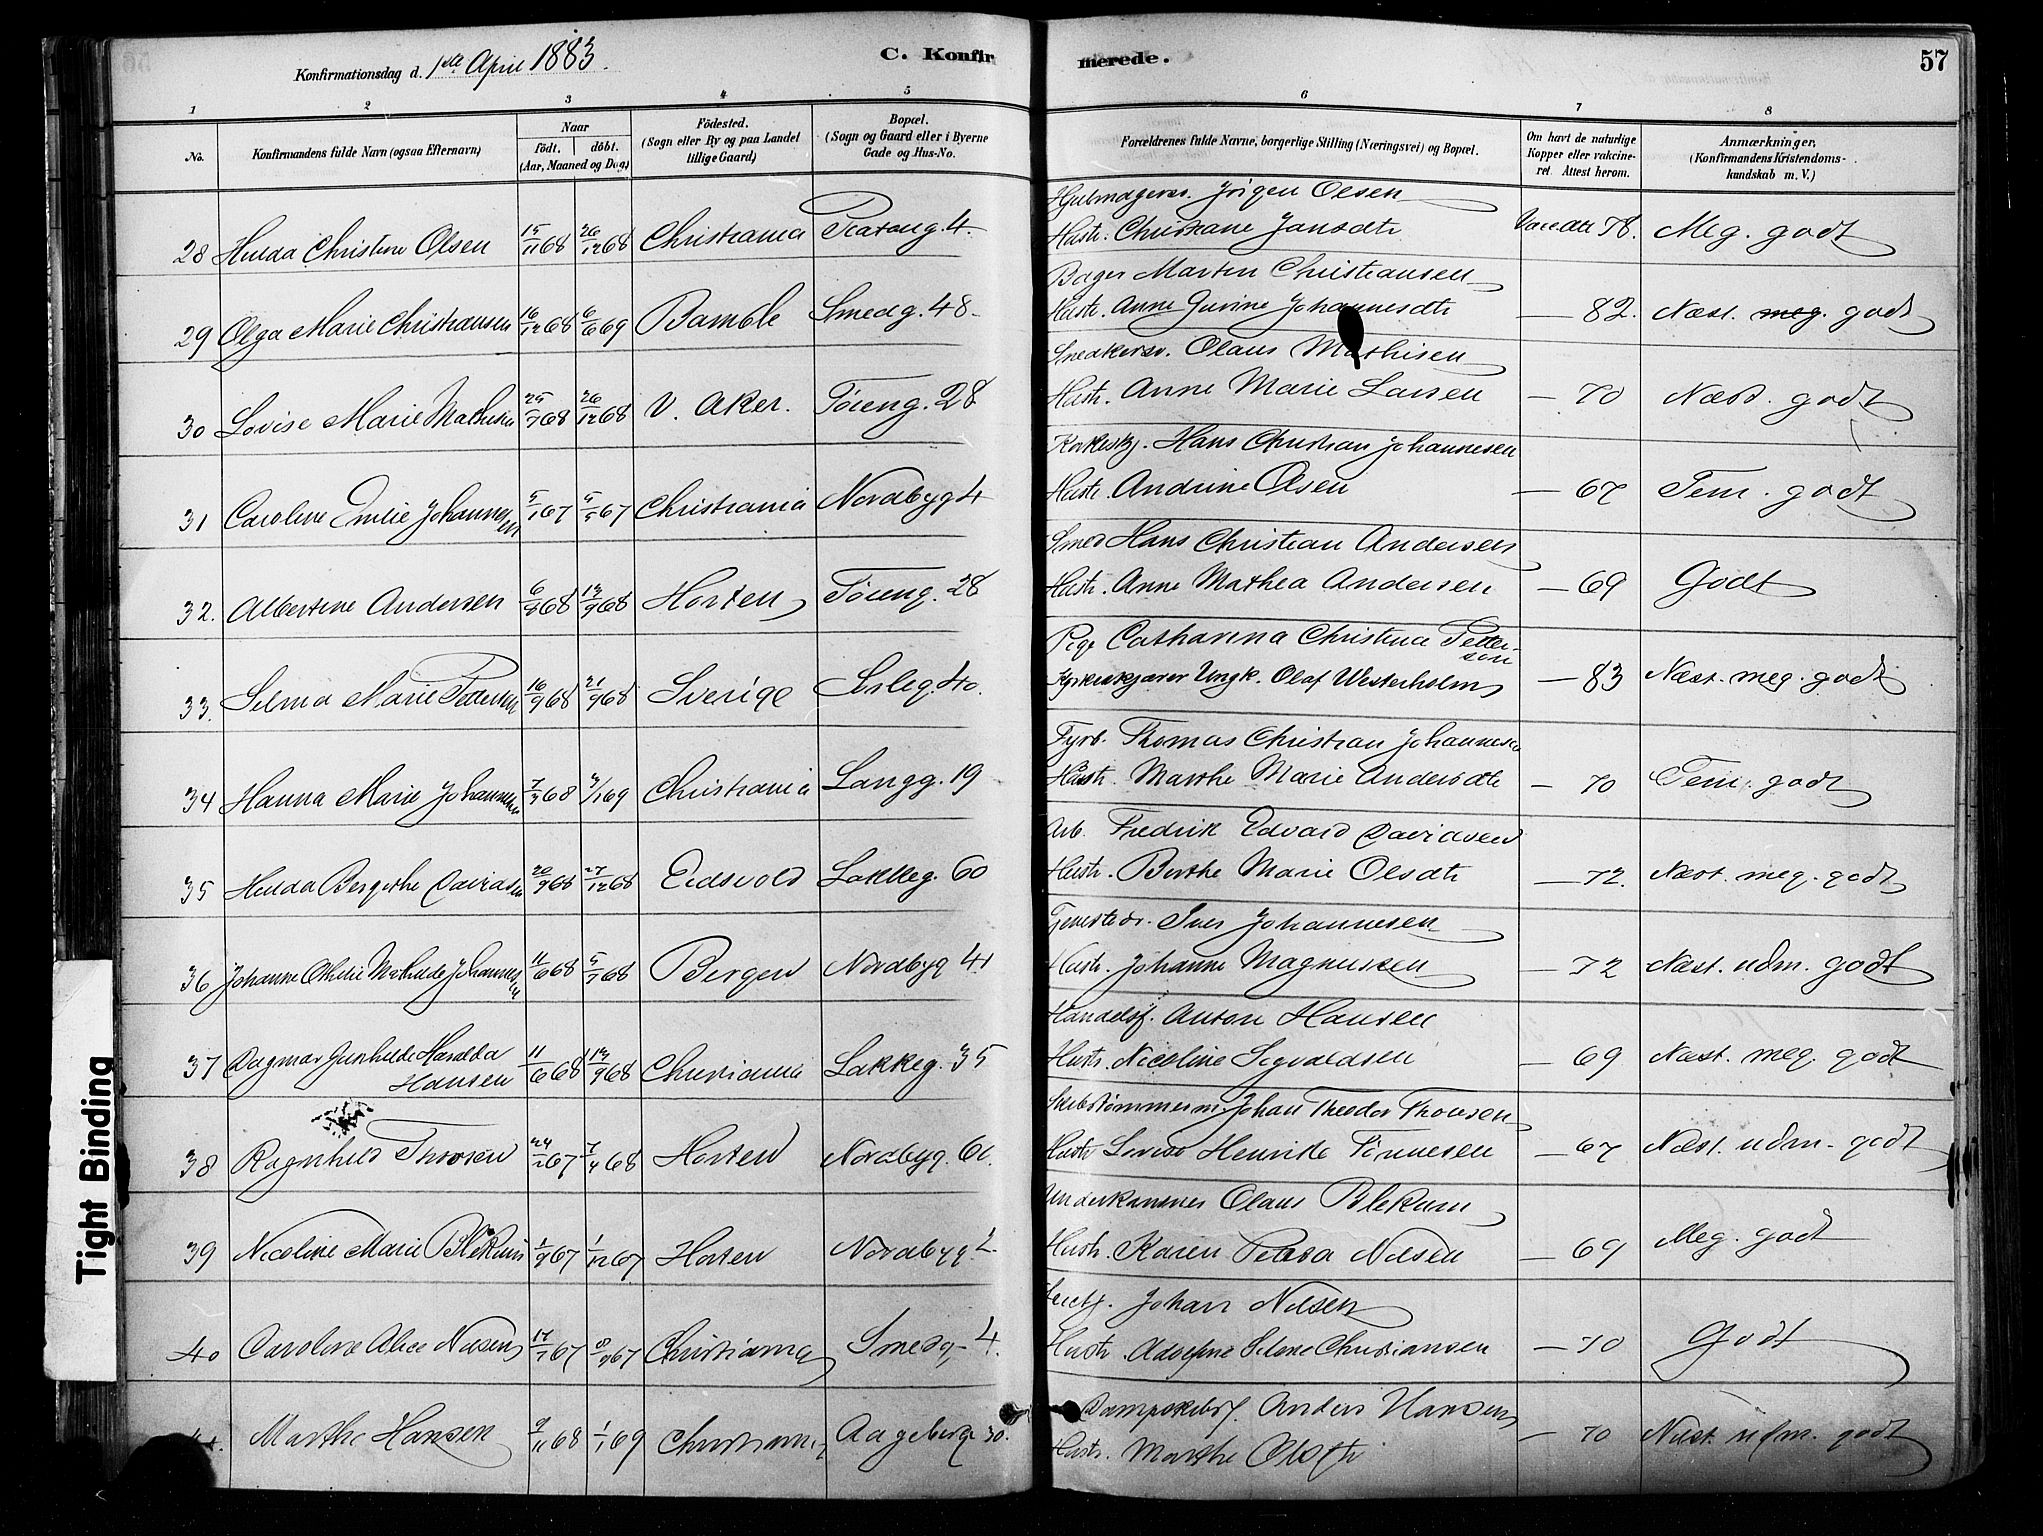 Konfirmationsdag d. 1ste April 1883.
C. Konfirmerede.
57
1 2 3 4 5 6 7 8
No.
Konfirmandens fulde Navn (ogsaa Efternavn)
Naar
födt. döbt.
(Aar, Maaned og Dag)
Födested.
(Sogn eller By og paa Landet
tillige Gaard)
Bopæl.
(Sogn og Gaard eller i Byerne
Gade og Hus-No.
Forældrenes fulde Navne, borgerlige Stilling (Næringsvei) og Bopæl.
Om havt de naturlige
Kopper eller vakcine-
ret. Attest herom.
Anmærkninger,
(Konfirmandens Kristendoms-
kundskab m. V.)
Hjulmagersv. Jörgen Olsen
28 Hulda Christine Olsen 15/11 68 26/12 68 Christiania Platoug. 4. Hustr. Christiane Jansdtr Vaccdtt 78. Meg. godt
Bager Martin Christiansen
29 Olga Marie Christiansen 16/12 68 6/6 69 Bamble Smedg. 48. Hustr. Anne Gurine Johannesdtr — 82. Næst. meg. godt
Snedkersv. Olaus Mathisen
30 Lovise Marie Mathisen 25/7 68 26/12 68 V. Aker. Töieng. 28 Hustr. Anne Marie Larsen — 70 Næst. godt
Hans Christian Johannesen
31 Caroline Emilie Johannesen 5/1 67 5/5 67 Christiania Nordbyg 4 Hustr. Andrine Olsen — 67 Tem. godt
Smed Hans Christian Andersen
32. Albertine Andersen 6/8 68 13/9 68 Horten Töieng. 28 Hustr. Anne Mathea Andersen — 69 Godt
Pige Catharina Christina Petterson
33. Selma Marie Petersen 16/9 68 21/9 68 Sverige Sörleg. 40. Ungk. Olaf Westerholm — 83 Næst. meg. godt
Fyrb. Thomas Christian Johannesen
34 Hanna Marie Johannesen 7/3 68 3/1 69 Christiania Langg. 19 Hustr. Marthe Marie Andersdtr — 70 Tem. godt
Arb. Fredrik Edvard Davidsen
35 Hulda Bergithe Davidsen 20/9 68 27/12 68 Eidsvold Lakkeg. 60 Hustr. Berthe Marie Olsdtr — 72. Næst. meg. godt
Iver Johannesen
36 Johanne Othilie Mathilde Johannesen 11/6 68 5/7 68 Bergen Nordbyg 41 Hustr. Johanne Magnussen — 72 Næst. udm. godt
Handelsf. Anton Hansen
37 Dagmar Gunhilde Haralda 11/6 68 13/9 68 Christiania Lakkeg. 35 Hustr. Nicoline Sigvaldsen — 69 Næst. meg. godt
Hansen
Skibstömmerm. Johan Theodor Thorsen
38 Ragnhild Thorsen 24/12 67 7/4 68 Horten Nordbyg. 60. Hustr. Lovise Henrikke Tönnesen — 67 Næst. udm. godt
Underkanoner Olaus Blekum
39 Nicoline Marie Blekum 1/9 67 1/12 67 Horten Nordbyg. 2 Hustr. Karen Petrea Nilsen — 69 Meg. godt
Johan Nilsen
40 Caroline Alice Nilsen 17/7 67 8/9 67 Christiania Smedg. 4. Hustr. Adolfine Selene Christiansen — 70 Godt
Dampskibsf. Anders Hansen
41. Marthe Hansen 9/11 68 1/1 69 Christiania Aagebergg 30. Hustr. Marthe Olsdtr — 70 Næst. udm. godt
Tight Binding